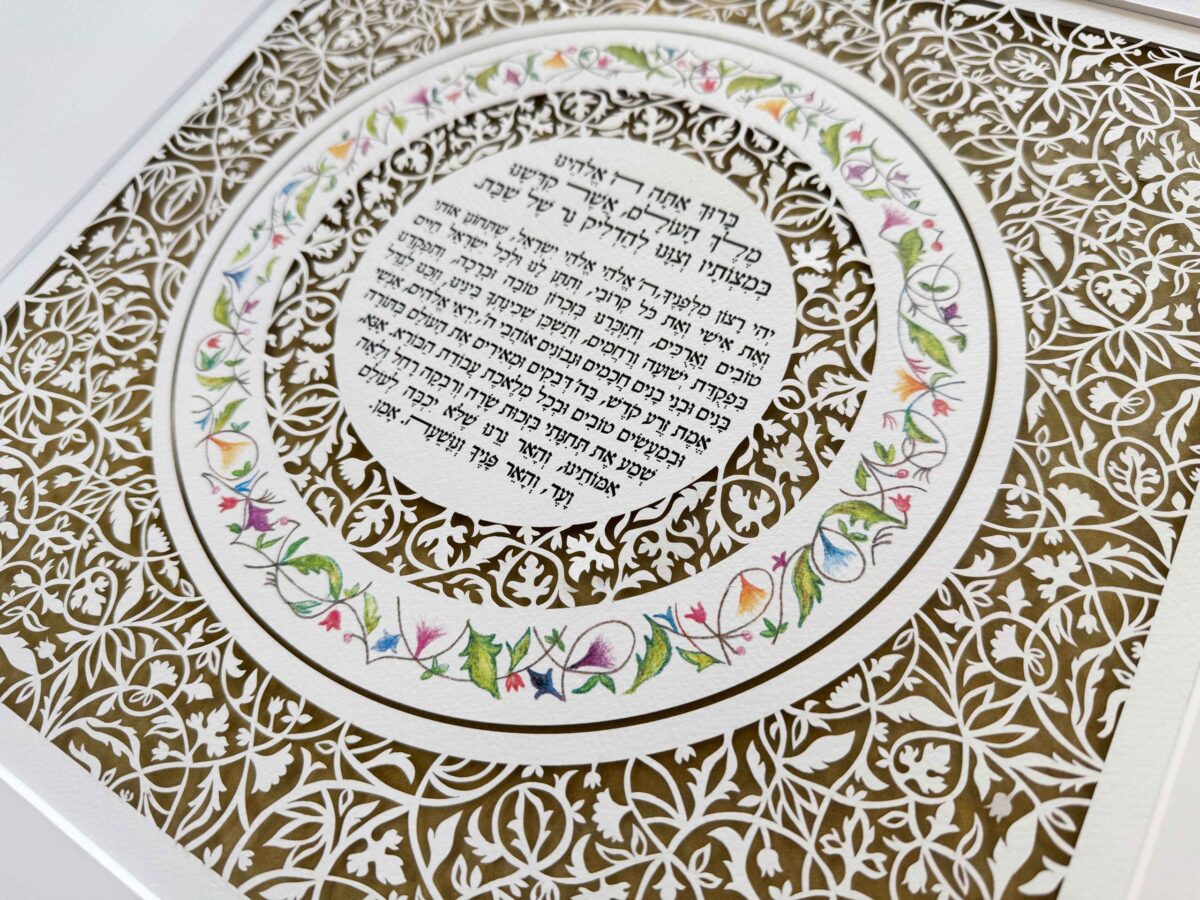 בָּרוּךְ אַתָּה ה׳ אֱלֹהֵינוּ
מֶלֶךְ הָעוֹלָם, אֲשֶׁר קִדְּשָׁנוּ
בְּמִצְוֹתָיו וְצִוָּנוּ לְהַדְלִיק נֵר שֶׁל שַׁבָּת.
יְהִי רָצוֹן מִלְּפָנֶיךָ, ה׳ אֱלֹהַי אֱלֹהֵי יִשְׂרָאֵל, שֶׁתְּחוֹנֵן אוֹתִי
וְאֶת אִישִׁי וְאֶת כָּל קְרוֹבַי, וְתִתֵּן לָנוּ וּלְכָל יִשְׂרָאֵל חַיִּים
טוֹבִים וַאֲרֻכִּים, וְתִזְכְּרֵנוּ בְּזִכְרוֹן טוֹבָה וּבְרָכָה, וְתִפְקְדֵנוּ
בִּפְקֻדַּת יְשׁוּעָה וְרַחֲמִים, וְתַשְׁכֵּן שְׁכִינָתְךָ בֵּינֵינוּ, וְזַכֵּנוּ לְגַדֵּל
בָּנִים וּבְנֵי בָנִים חֲכָמִים וּנְבוֹנִים אוֹהֲבֵי ה׳, יִרְאֵי אֱלֹהִים, אַנְשֵׁי
אֱמֶת זֶרַע קֹדֶשׁ, בַּה׳ דְּבֵקִים וּמְאִירִים אֶת הָעוֹלָם בַּתּוֹרָה
וּבְמַעֲשִׂים טוֹבִים וּבְכָל מְלֶאכֶת עֲבוֹדַת הַבּוֹרֵא. אָנָּא,
שְׁמַע אֶת תְּחִנָּתִי בִּזְכוּת שָׂרָה וְרִבְקָה רָחֵל וְלֵאָה
אִמּוֹתֵינוּ, וְהָאֵר נֵרֵנוּ שֶׁלֹּא יִכְבֶּה לְעוֹלָם
וָעֶד, וְהָאֵר פָּנֶיךָ וְנִוָּשֵׁעָה. אָמֵן.